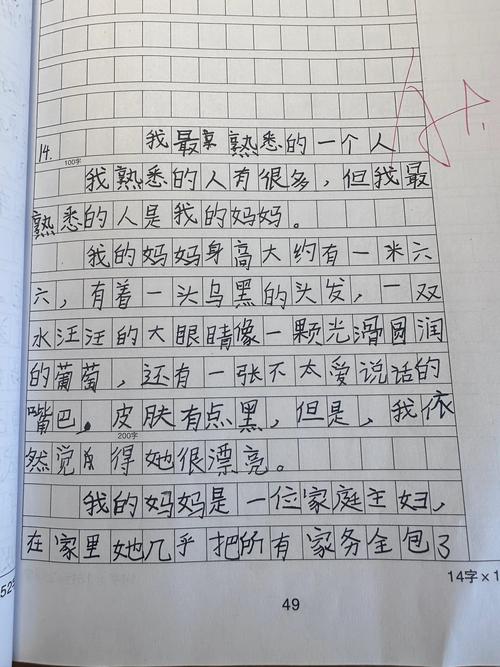 14. 我最熟悉的一个人
100字
我熟悉的人有很多，但我最
熟悉的人是我的妈妈。
我的妈妈身高大约有一米六
六，有着一头乌黑的头发，一双
水汪汪的大眼睛像一颗光滑圆润
的葡萄，还有一张不太爱说话的
嘴巴。皮肤有点黑，但是，我依
200字
然觉得她很漂亮。
我的妈妈是一位家庭主妇，
在家里她几乎把所有家务全包了
14字×1
49